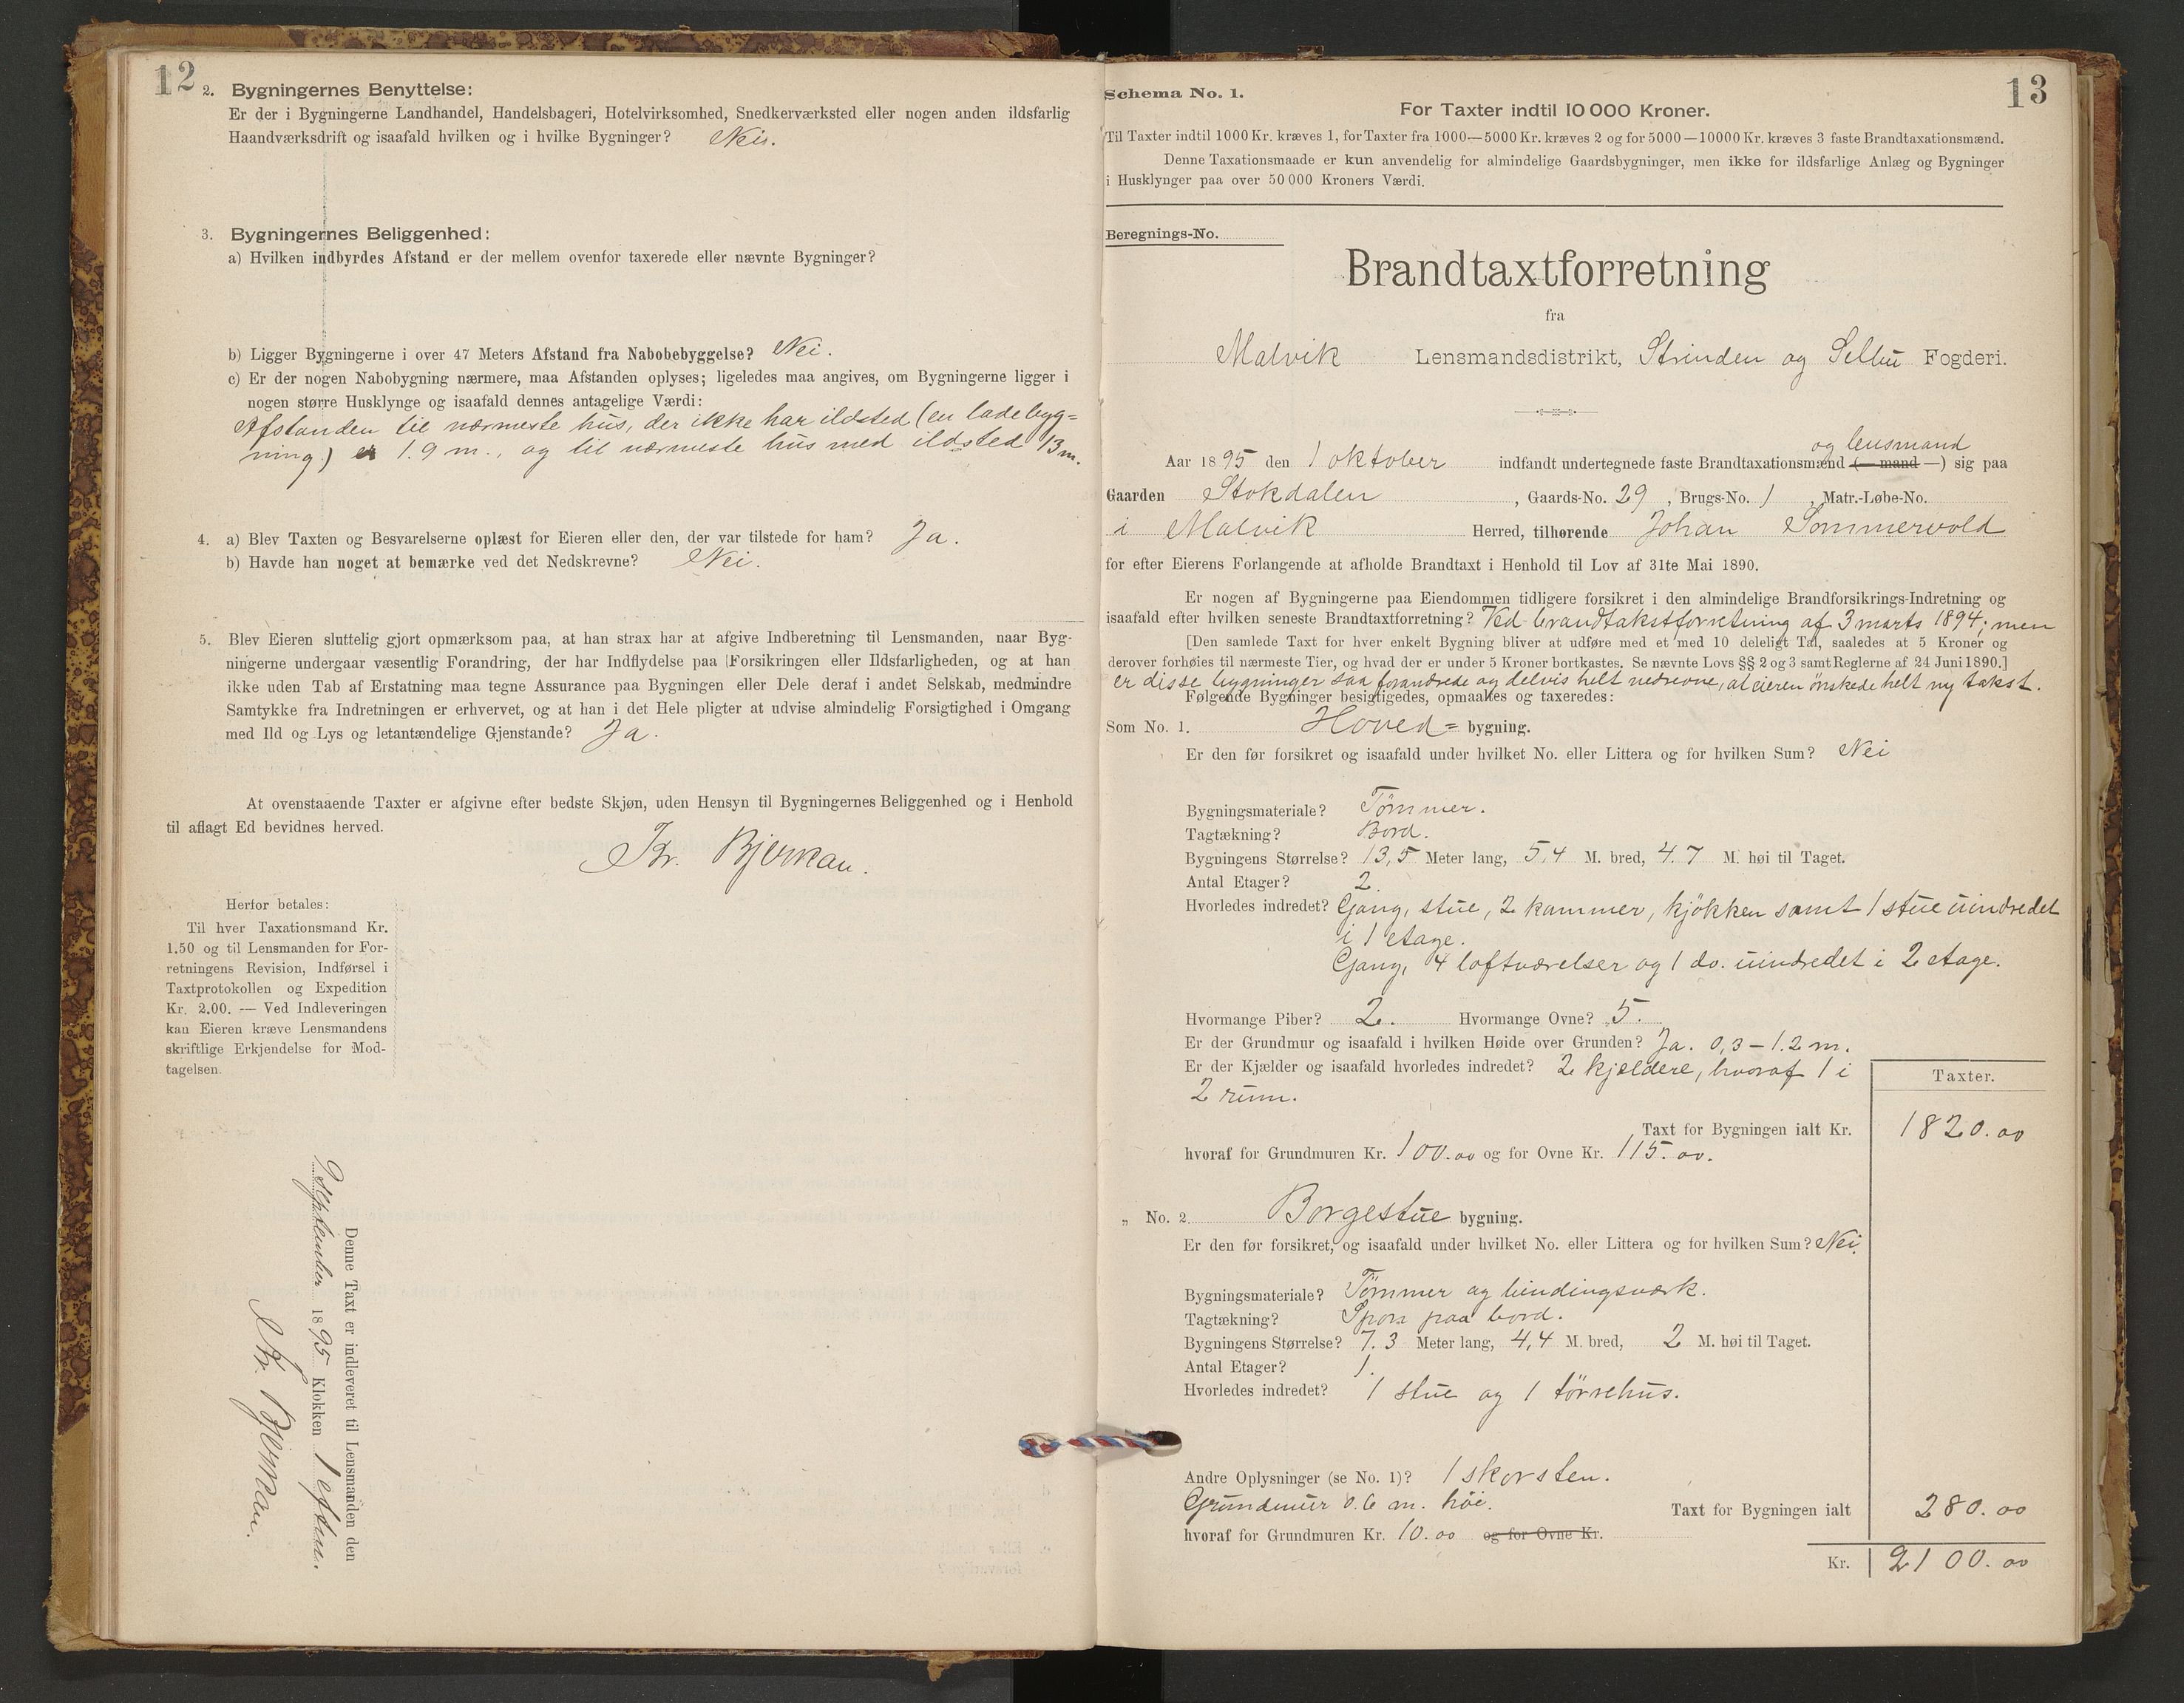 12
2. Bygningernes Benyttelse:
Er der i Bygningerne Landhandel, Handelsbageri, Hotelvirksomhed, Snedkerværksted eller nogen anden ildsfarlig
Haandværksdrift og isaafald hvilken og i hvilke Bygninger? Nei.
3. Bygningernes Beliggenhed:
a) Hvilken indbyrdes Afstand er der mellem ovenfor taxerede eller nævnte Bygninger?
b) Ligger Bygningerne i over 47 Meters Afstand fra Nabobebyggelse? Nei.
c) Er der nogen Nabobygning nærmere, maa Afstanden oplyses; ligeledes maa angives, om Bygningerne ligger i
nogen større Husklynge og isaafald dennes antagelige Værdi:
Afstanden til nærmeste hus, der ikke har ildsted (en ladebyg=
ning) er 1.9 m., og til nærmeste hus med ildsted 13 m.
4. a) Blev Taxten og Besvarelserne oplæst for Eieren eller den, der var tilstede for ham? Ja.
b) Havde han noget at bemærke ved det Nedskrevne? Nei.
5. Blev Eieren sluttelig gjort opmærksom paa, at han strax har at afgive Indberetning til Lensmanden, naar Byg-
ningerne undergaar væsentlig Forandring, der har Indflydelse paa Forsikringen eller Ildsfarligheden, og at han
ikke uden Tab af Erstatning maa tegne Assurance paa Bygningen eller Dele deraf i andet Selskab, medmindre
Samtykke fra Indretningen er erhvervet, og at han i det Hele pligter at udvise almindelig Forsigtighed i Omgang
med Ild og Lys og letantændelige Gjenstande? Ja.
At ovenstaaende Taxter er afgivne efter bedste Skjøn, uden Hensyn til Bygningernes Beliggenhed og i Henhold
til aflagt Ed bevidnes herved.
Kr. Bjerkan.
Herfor betales:
Til hver Taxationsmand Kr.
1.50 og til Lensmanden for For-
retningens Revision, Indførsel i
Taxtprotokollen og Expedition
Kr. 2.00. — Ved Indleveringen
kan Eieren kræve Lensmandens
skriftlige Erkjendelse for Mod-
tagelsen.
Denne Taxt er indleveret til Lensmanden den
9 september 1895 Klokken 1 efterm.
Kr. Bjerkan.
13
Schema No. 1.
For Taxter indtil 10 000 Kroner.
Til Taxter indtil 1000 Kr. kræves 1, for Taxter fra 1000—5000 Kr. kræves 2 og for 5000—10000 Kr. kræves 3 faste Brandtaxationsmænd.
Denne Taxationsmaade er kun anvendelig for almindelige Gaardsbygninger, men ikke for ildsfarlige Anlæg og Bygninger
i Husklynger paa over 50 000 Kroners Værdi.
Beregnings-No.
Brandtaxtforretning
fra
Malvik Lensmandsdistrikt, Strinden og Selbu Fogderi.
og lensmand
Aar 1895 den 1 oktober indfandt undertegnede faste Brandtaxationsmænd (— mand —) sig paa
Gaarden Stokdalen, Gaards-No. 29, Brugs-No. 1, Matr.-Løbe-No.
i Malvik Herred, tilhørende Johan Sommervold
for efter Eierens Forlangende at afholde Brandtaxt i Henhold til Lov af 31te Mai 1890.
Er nogen af Bygningerne paa Eiendommen tidligere forsikret i den almindelige Brandforsikrings-Indretning og
isaafald efter hvilken seneste Brandtaxtforretning? Ved brandtakstforretning af 3 marts 1894; men
[Den samlede Taxt for hver enkelt Bygning bliver at udføre med et med 10 deleligt Tal, saaledes at 5 Kroner og
derover forhøies til nærmeste Tier, og hvad der er under 5 Kroner bortkastes. Se nævnte Lovs §§ 2 og 3 samt Reglerne af 24 Juni 1890.]
er disse bygninger saa forandrede og delvis helt nedrevne, at eieren ønskede helt ny takst.
Følgende Bygninger besigtigedes, opmaaltes og taxeredes:
Som No. 1. Hoved= bygning.
Er den før forsikret og isaafald under hvilket No. eller Littera og for hvilken Sum? Nei
Bygningsmateriale? Tömmer.
Tagtækning? Bord.
Bygningens Størrelse? 13,5 Meter lang, 5,4 M. bred, 4.7 M. høi til Taget.
Antal Etager? 2.
Hvorledes indredet? Gang, stue, 2 kammer, kjökken samt 1 stue uindredet
i 1 etage.
Gang, 4 loftværelser og 1 do. uindredet i 2 etage.
Hvormange Piber? 2. Hvormange Ovne? 5.
Er der Grundmur og isaafald i hvilken Høide over Grunden? Ja. 0,3 – 1.2 m.
Er der Kjælder og isaafald hvorledes indredet? 2 kjældere, hvoraf 1 i
2 rum.
Taxter.
Taxt for Bygningen ialt Kr. 1820.00
hvoraf for Grundmuren Kr. 100.00 og for Ovne Kr. 115.00.
„ No. 2 Borgestue bygning.
Er den før forsikret, og isaafald under hvilket No. eller Littera og for hvilken Sum? Nei.
Bygningsmateriale? Tömmer og bindingsværk.
Tagtækning? Spon paa bord.
Bygningens Størrelse? 7.3 Meter lang, 4,4 M. bred, 2 M. høi til Taget.
Antal Etager? 1.
Hvorledes indredet? 1 stue og 1 törrehus.
Andre Oplysninger (se No. 1)? 1 skorsten.
Grundmur 0.6 m. höi.
Taxt for Bygningen ialt 280.00
hvoraf for Grundmuren Kr. 10.00 og for Ovne Kr.
Kr. 2100.00